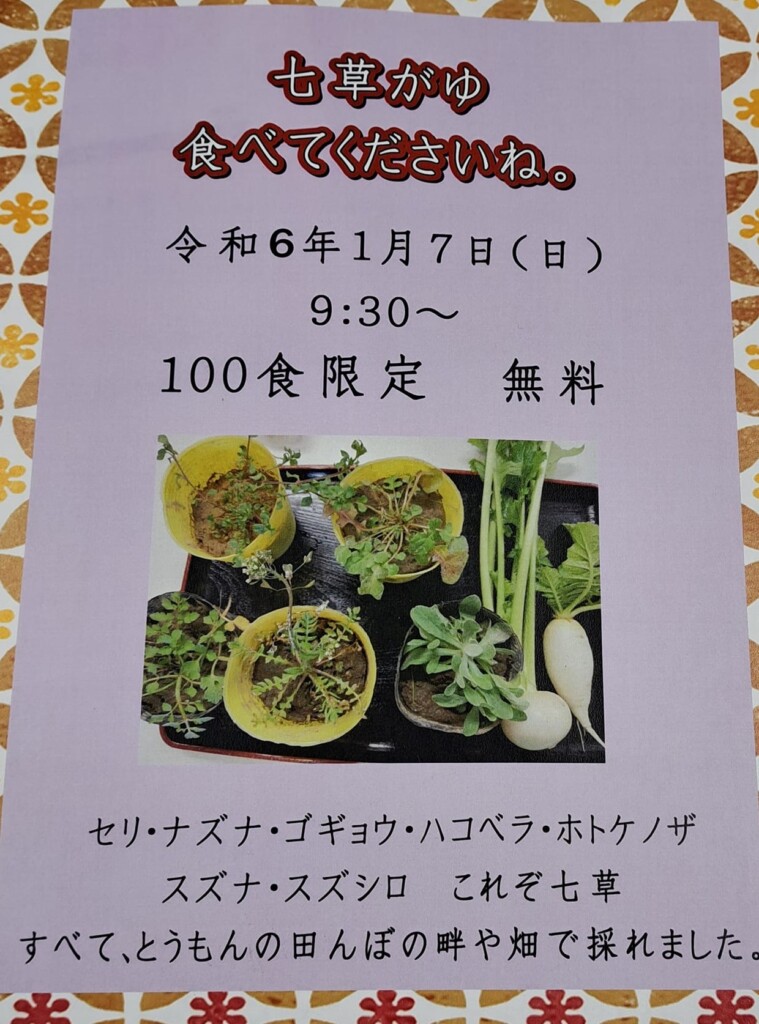 七草がゆ
食べてくださいね。
令和6年1月7日(日)
9:30～
100食限定　無料
セリ・ナズナ・ゴギョウ・ハコベラ・ホトケノザ
スズナ・スズシロ　これぞ七草
すべて、とうもんの田んぼの畔や畑で採れました。